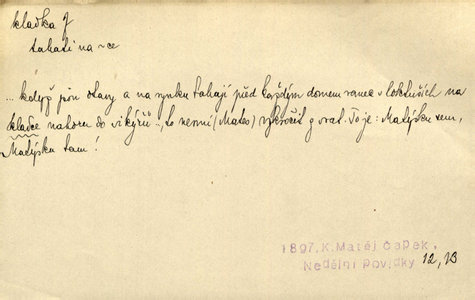 kladka f
tahati na ~ce
... když jsou otavy a na rynku tahají před každým domem ranec v loktuších na
kladce nahoru do vikýřů .., to nesmí (Mates) vykročit z vrat. To je: Matýsku sem,
Matýsku tam!
1897, K. Matěj Čapek,
Nedělní povídky 12, 13